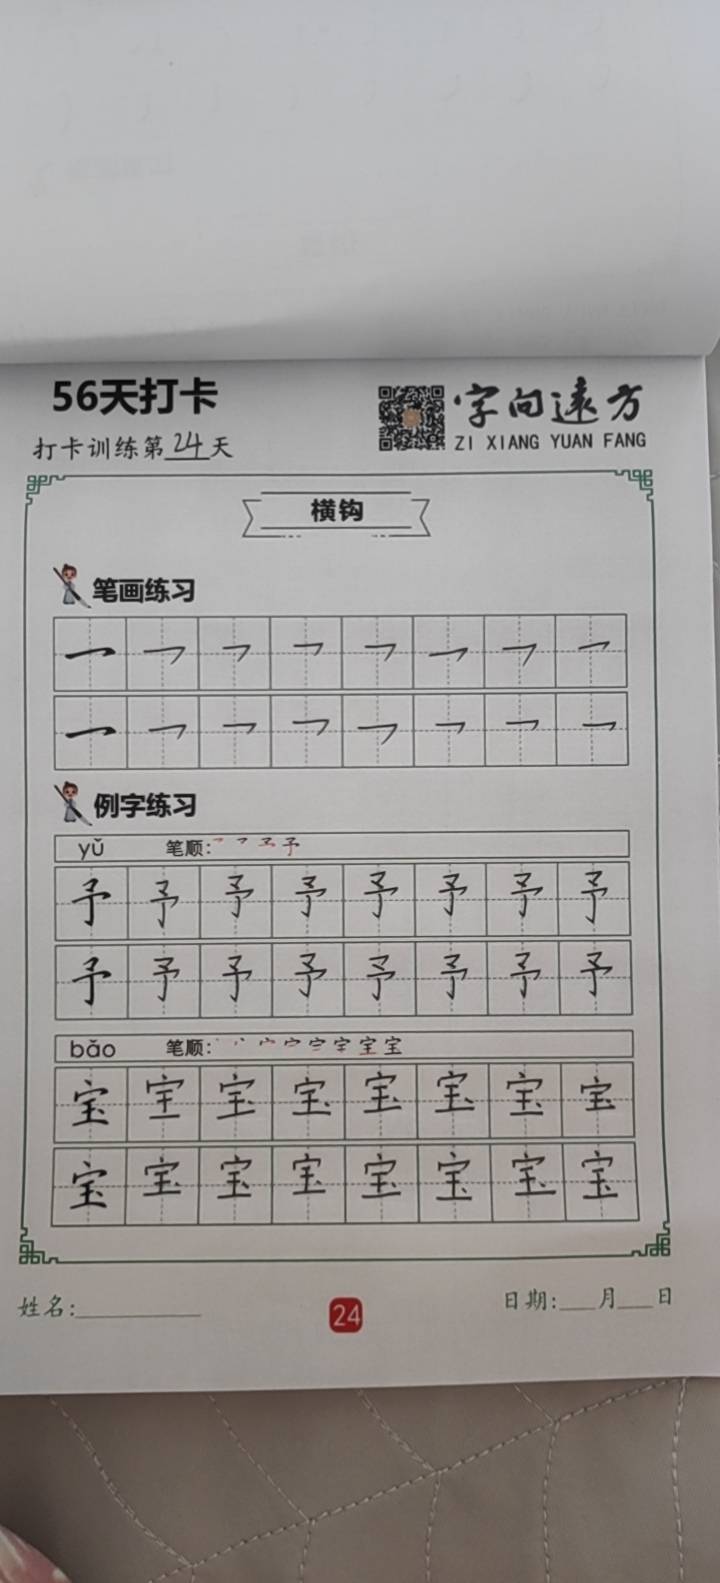 56天打卡
字向远方
ZI XIANG YUAN FANG
打卡训练第24天
横钩
笔画练习
乛乛乛乛乛乛乛乛
乛乛乛乛乛乛乛乛
例字练习
yǔ 笔顺:
予予予予予予予予
予予予予予予予予
bǎo 笔顺:
宝宝宝宝宝宝宝宝
宝宝宝宝宝宝宝宝
姓名:
24
日期: 月 日